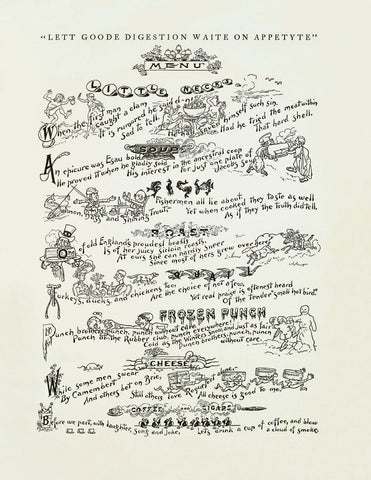 "LETT GOODE DIGESTION WAITE ON APPETYTE"
MENU
LITTLE NECKS
When the first man a clam
caught a clam
It is rumored he said d-n!
Sad to tell.
himself such sin.
Had he tried the meat within
That hard shell.
SOUP
An epicure was Esau bold
He proved it when he gladly sold
His interest in the ancestral coop
for just one plate of
Jacob's soup.
FISH
Fishermen all lie about they taste as well
Yet when cooked
As if they the truth did tell.
ROAST
of old England's proudest beasts,
Is of her juicy sirloin roasts.
At ours she can hardly sneer
Since most of hers grow over here
QUAIL
Turkeys, ducks and chickens too,
Are the choice of not a few,
Yet real praise is oftenest heard
Of the tender "small hot bird."
FROZEN PUNCH
Punch brothers, punch, punch without care
Punch at the Rubber club, punch everywhere!
Cold as the Winters Snow and just as fair
Punch brothers, punch, punch
without care.
CHEESE
While some men swear
By Camembert
And others bet on Brie,
Still others love Roquefort
All cheese is good to me.
COFFEE CIGARS
Before we part, with laughter, song and joke,
Let's drink a cup of coffee, and blow
a cloud of smoke.